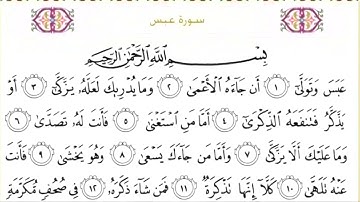 سورة عبس
بِسْمِ ٱللَّهِ ٱلرَّحْمَٰنِ ٱلرَّحِيمِ
عَبَسَ وَتَوَلَّىٰٓ ١ أَن جَآءَهُ ٱلْأَعْمَىٰ ٢ وَمَا يُدْرِيكَ لَعَلَّهُۥ يَزَّكَّىٰٓ ٣ أَوْ
يَذَّكَّرُ فَتَنفَعَهُ ٱلذِّكْرَىٰٓ ٤ أَمَّا مَنِ ٱسْتَغْنَىٰ ٥ فَأَنتَ لَهُۥ تَصَدَّىٰ ٦
وَمَا عَلَيْكَ أَلَّا يَزَّكَّىٰ ٧ وَأَمَّا مَن جَآءَكَ يَسْعَىٰ ٨ وَهُوَ يَخْشَىٰ ٩ فَأَنتَ
عَنْهُ تَلَهَّىٰ ١٠ كَلَّآ إِنَّهَا تَذْكِرَةٌ ١١ فَمَن شَآءَ ذَكَرَهُۥ ١٢ فِى صُحُفٍ مُّكَرَّمَةٍ